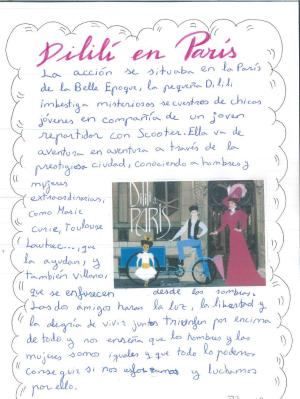 Dililí en París
La acción se situaba en la París
de la Belle Epoque, la pequeña Dilili
imbestiga misteriosos secuestros de chicas
jóvenes en compañía de un joven
repartidor con Scooter. Ella va de
aventura en aventura a través de la
prestigiosa ciudad, conociendo a hombres y
mujeres
extraordinarias,
como Marie
Curie, Toulouse
Lautrec..., que
la ayudan; y
también Villano,
que se enfurecen desde las sombras.
Los dos amigos haran la luz, la libertad y
la alegría de vivir juntos triunfen por encima
de todo y nos enseña que lo hombres y las
mujeres somos iguales y que todo lo podemos
conseguir si nos esforzamos y luchamos
por ello.
PARIS